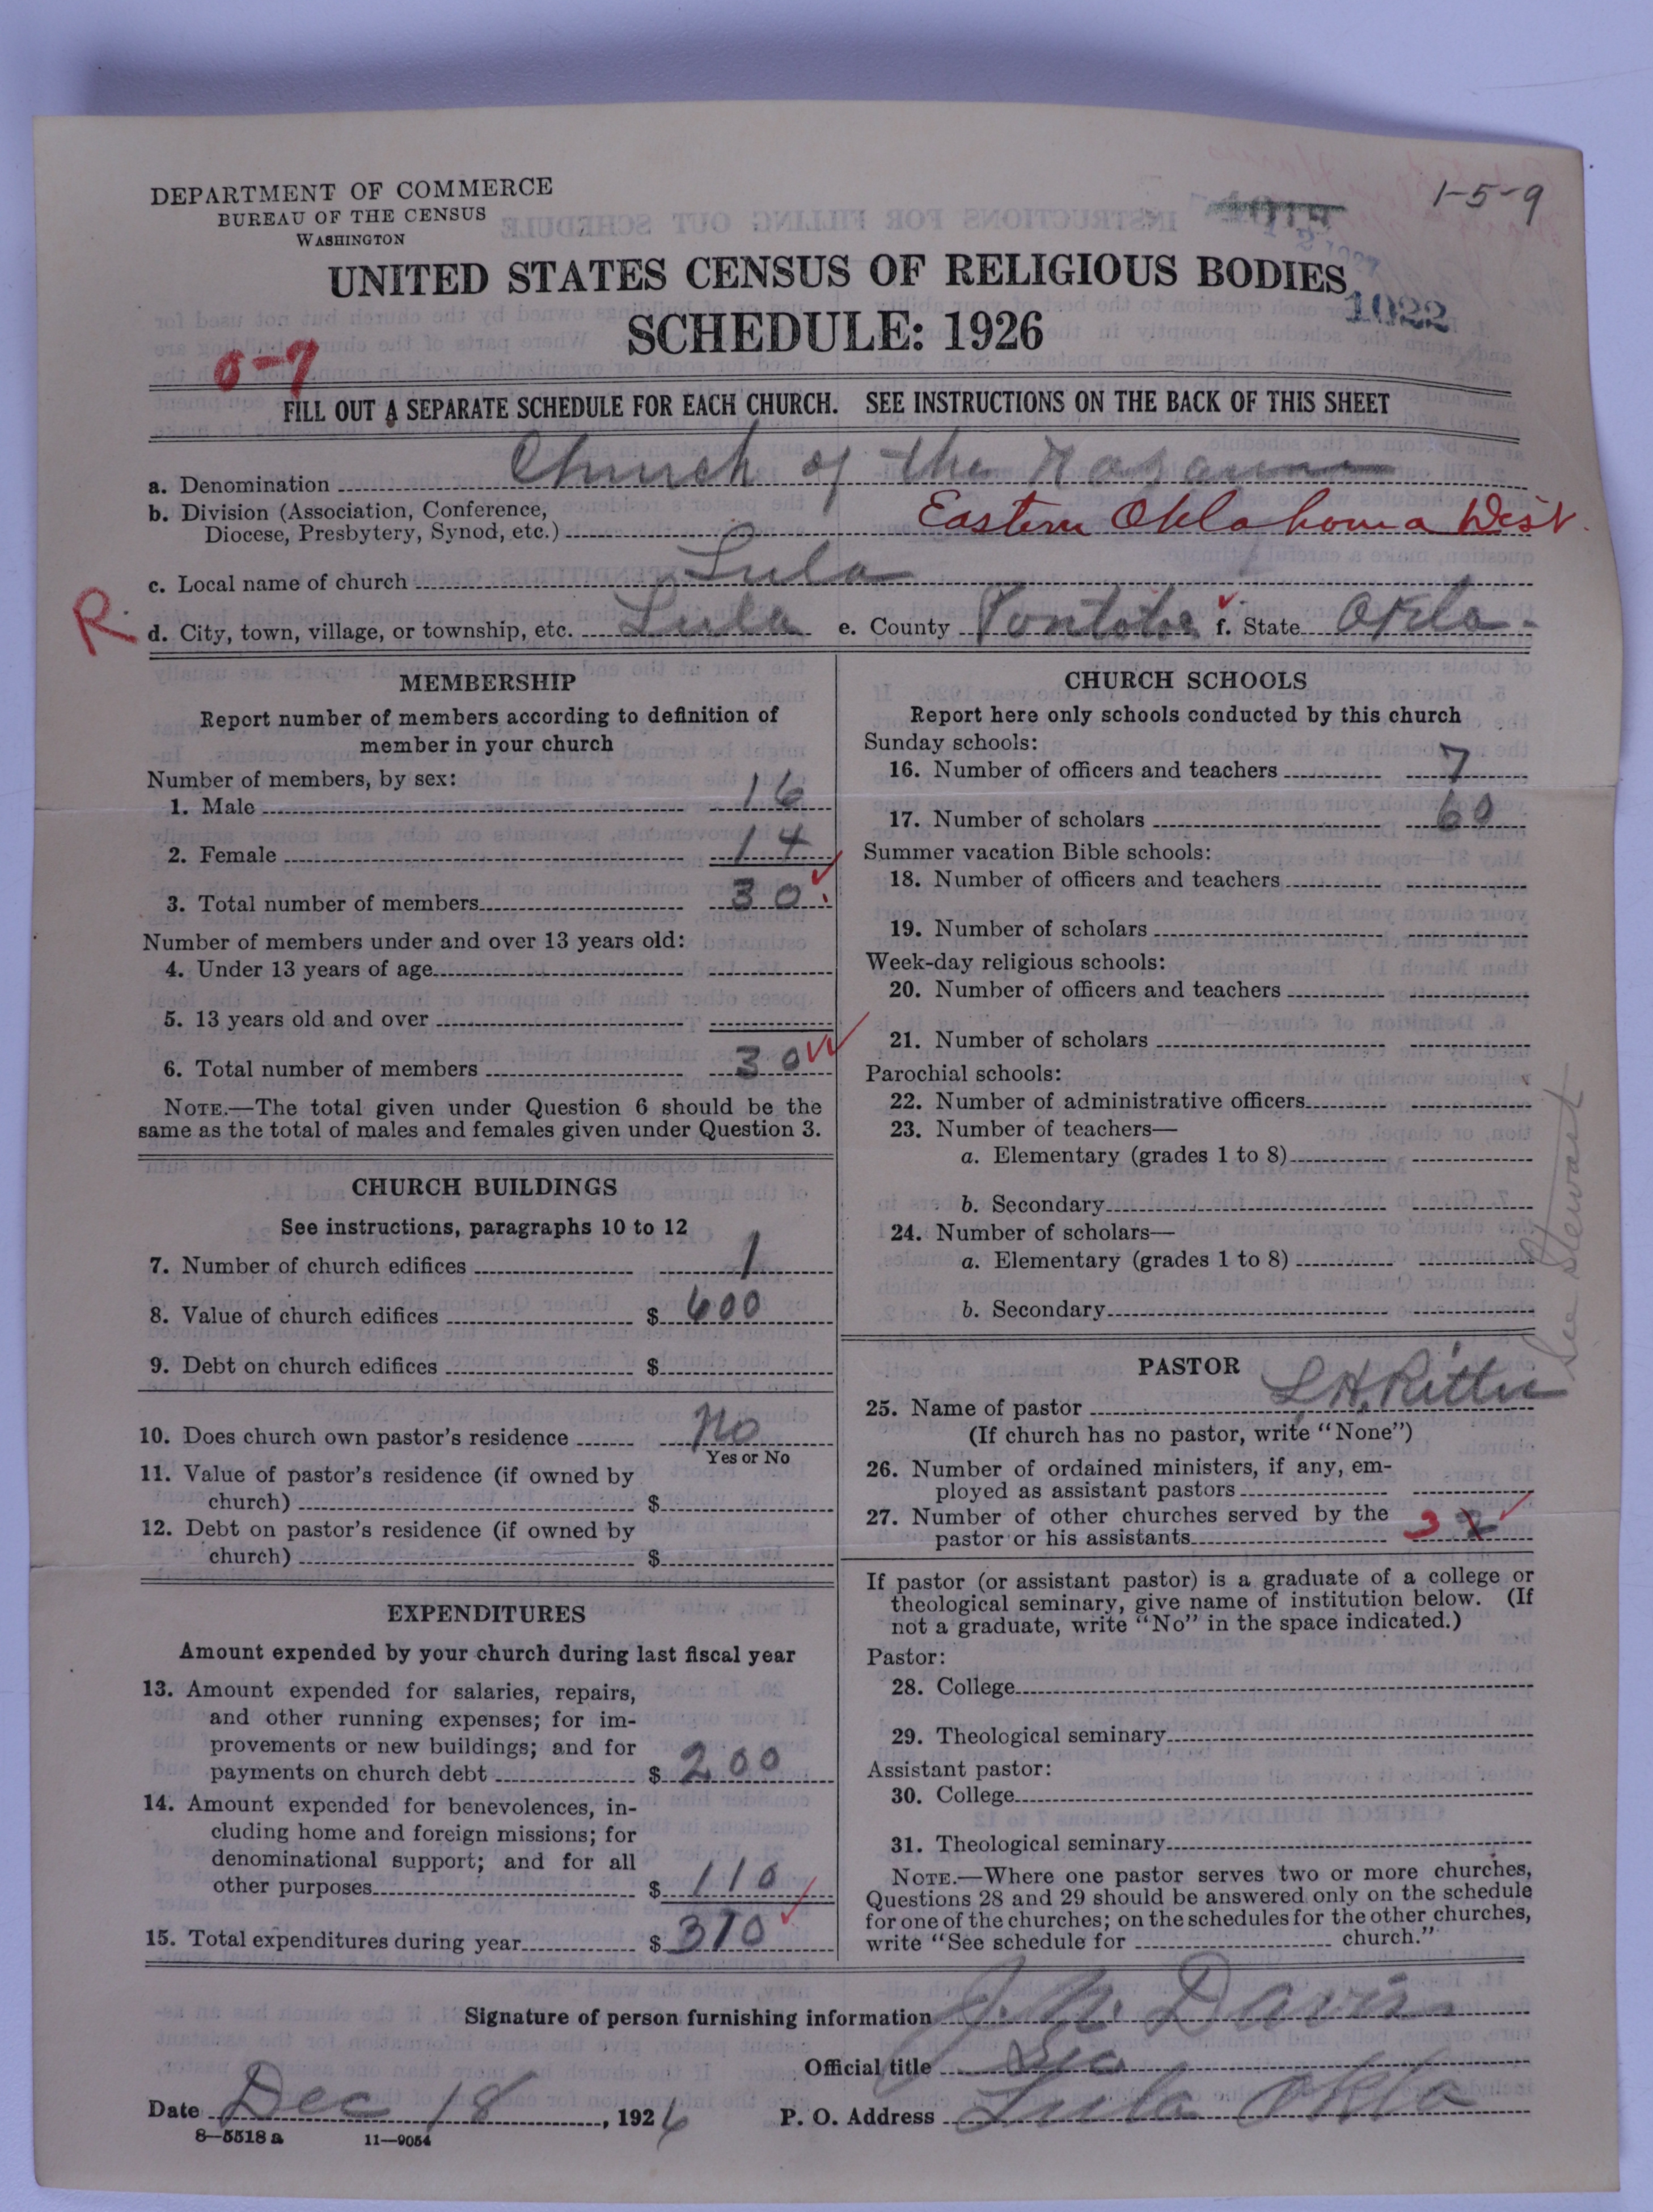 DEPARTMENT OF COMMERCE
BUREAU OF THE CENSUS
WASHINGTON
1-5-9
UNITED STATES CENSUS OF RELIGIOUS BODIES
1022
SCHEDULE: 1926
0-7
FILL OUT A SEPARATE SCHEDULE FOR EACH CHURCH. SEE INSTRUCTIONS ON THE BACK OF THIS SHEET
a. Denomination Church of the
b. Division (Association, Conference,
Diocese, Presbytery, Synod, etc.) Eastern Oklahoma West
c. Local name of church Lula
R. d. City, town, village, or township, etc. Lula e. County f. State Okla.
MEMBERSHIP
Report number of members according to definition of
member in your church
Number of members, by sex:
1. Male 16
2. Female 14
3. Total number of members 30
Number of members under and over 13 years old:
4. Under 13 years of age
5. 13 years old and over
6. Total number of members 30
NOTE.—The total given under Question 6 should be the
same as the total of males and females given under Question 3.
CHURCH BUILDINGS
See instructions, paragraphs 10 to 12
7. Number of church edifices 1
8. Value of church edifices $ 600
9. Debt on church edifices $
10. Does church own pastor's residence No
Yes or No
11. Value of pastor's residence (if owned by
church) $
12. Debt on pastor's residence (if owned by
church) $
EXPENDITURES
Amount expended by your church during last fiscal year
13. Amount expended for salaries, repairs,
and other running expenses; for im-
provements or new buildings; and for
payments on church debt $ 200
14. Amount expended for benevolences, in-
cluding home and foreign missions; for
denominational support; and for all
other purposes $ 110
15. Total expenditures during year $ 310
CHURCH SCHOOLS
Report here only schools conducted by this church
Sunday schools:
16. Number of officers and teachers 7
17. Number of scholars 60
Summer vacation Bible schools:
18. Number of officers and teachers
19. Number of scholars
Week-day religious schools:
20. Number of officers and teachers
21. Number of scholars
Parochial schools:
22. Number of administrative officers
23. Number of teachers—
a. Elementary (grades 1 to 8)
b. Secondary
24. Number of scholars—
a. Elementary (grades 1 to 8)
b. Secondary
See Stewart
PASTOR
25. Name of pastor L.H. Ritter
(If church has no pastor, write "None")
26. Number of ordained ministers, if any, em-
ployed as assistant pastors
27. Number of other churches served by the
pastor or his assistants 3
If pastor (or assistant pastor) is a graduate of a college or
theological seminary, give name of institution below. (If
not a graduate, write "No" in the space indicated.)
Pastor:
28. College
29. Theological seminary
Assistant pastor:
30. College
31. Theological seminary
NOTE.—Where one pastor serves two or more churches,
Questions 28 and 29 should be answered only on the schedule
for one of the churches; on the schedules for the other churches,
write "See schedule for church."
Signature of person furnishing information J. N. Davis
Official title Sec
Date Dec 18, 1926 P. O. Address Lula Okla
8—5518 a 11—9054